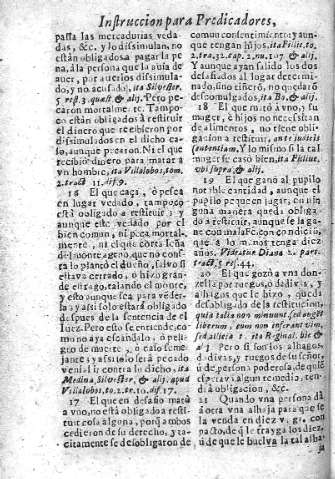 Instruccion para Predicadores,
passa las mercadurias veda-
das, &c. y lo dissimulan, no
estàn obligados a pagar la pe
na, à la persona que la auia de
auer, por auerlos dissimula-
do, y no acusado,
5 Pero pe-
caron mortalmente. Tampo-
co estàn obligados à restituir
el dinero que recibieron por
dissimularlos en el dicho ca-
so, aunque pecaron. Ni el que
recibiò dinero para matar a
vn hombre, ita Villalobos, tom.
2. tract. 11. dif. 9.
16 El que caça, ò pesca
en lugar vedado, tampoco
està obligado a restituir; y
aunque este vedado por el
bien comun, ni peca mortal-
mente, ni el que corta leña
del monte ageno, que no cons
ta lo plantò el dueño, salvo si
estava cerrado, o hizo gran-
de estrago, talando el monte,
y esto aunque sea para vēder-
la y assi solo estarà obligado
despues de la sentencia de el
Iuez. Pero esto se entiende, co
mo no aya escandalo, ò peli-
gro de muerte, ò caso seme-
jante y assi no serà pecado
venial ir contra lo dicho, ita
Medina, Silvester, & alij, apud
Villalobos, to. 2. tr. 10. dif. 17.
17 El que en desafio matò
a vno, no està obligado a rest-
tituir cosa alguna, porq̃ ambos
cedieron de su derecho, y ta-
citamente se desobligaron de
comun consentimiento y aun-
que tengan hijos, ita Filiuc. to.
2. tra. 32. cap. 2. nu. 107. & alij.
Y aunque ayan salido los dos
desafiados al lugar determi-
nado, sino riñerō, no quedarō
descomulgados, ita Di. & alij.
18 El que matò à vno, y su
muger, è hijos no necessitan
de alimentos, no tiene obli-
gacion a restituir, ante iudicis
sententiam, Y lo mismo si la tal
muger se casò bien, ita Filiuc.
ubi supra, & alij.
19 El que ganò al pupilo
notable cantidad, aunque el
pupilo pequen jugar, en nin-
guna manera queda obliga-
do à restituir, aunque se la ga-
ne con mala Fè, con condiciō,
que à lo m. nos tenga diez
años. Videatur Diana 2. part.
tract. 5. res. 44.
20 El que gozò a vna don-
zella por ruegos, ò dadivas, y
alhagos que le hizo, quedà
desobligado de la restituciō,
quia talia non minuunt, sed auget
liberum, cum non inferant vim,
& alij Pero si son los alhagos,
dadivas, y ruegos de su señor,
ù de persona poderosa, de quiē
espetava algun remedio, ten-
drà obligacion, &c.
21 Quando vna persona dà
à otra vna alhaja para que se
la venda en diez v. g. con
pacto, de q̃ le traiga los diez,
ù de que le buelva la tal alha
ja